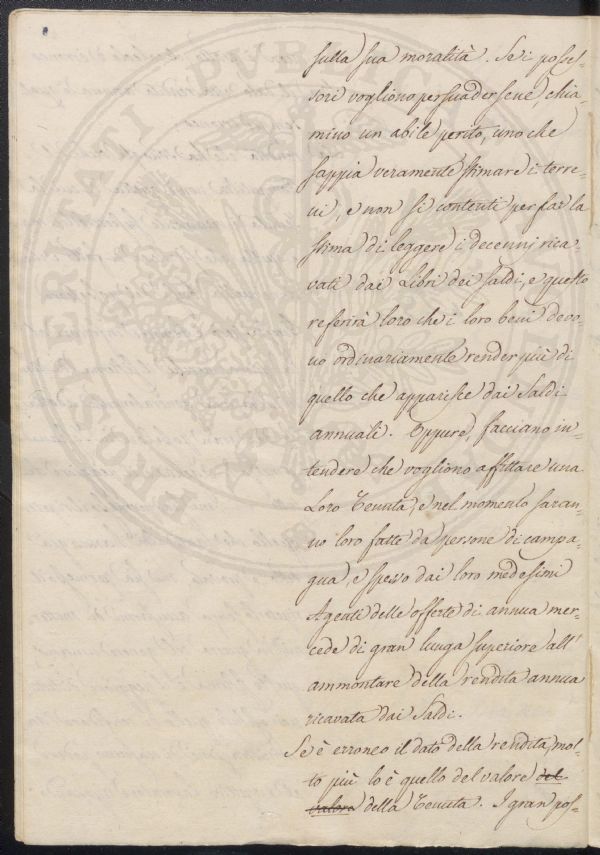 sulla sua moralità. Se i posses-
sori vogliono persuadersene, chia-
mino un abile perito, uno che
sappia veramente stimare i terre-
ni, e non si contenti per far la
stima di leggere i decenni rica-
vati dai Libri dei saldi, e questo
referirà loro che i loro beni devo-
no ordinariamente render più di
quello che apparisce dai Saldi
annuali. Oppure, facciano in-
tendere che vogliono affittare una
Loro Tenuta, e nel momento saran-
no loro fatte da persone di campa-
gna, e spesso dai loro medesimi
Agenti delle offerte di annua mer-
cede di gran lunga superiore all'
ammontare della rendita annua
ricavata dai Saldi.
Se è erroneo il dato della rendita, mol-
to più lo è quello del valore del
valore della Tenuta. I gran pos-
PROSPERITATI PUBLICAE